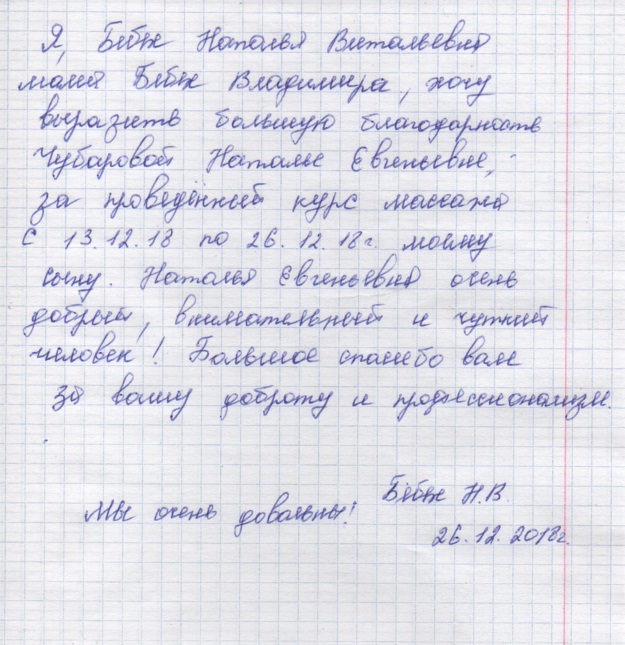 Я, Бебек Наталья Витальевна
мама Бебек Владимира, хочу
выразить большую благодарность
Чубаровой Наталье Евгеньевне,
за проведённый курс массажа
с 13.12.18 по 26.12.18г. моему
сыну. Наталья Евгеньевна очень
добрый, внимательный и чуткий
человек! Большое спасибо вам
за вашу доброту и профессионализм.
Бебек Н.В.
Мы очень довольны!
26.12.2018г.